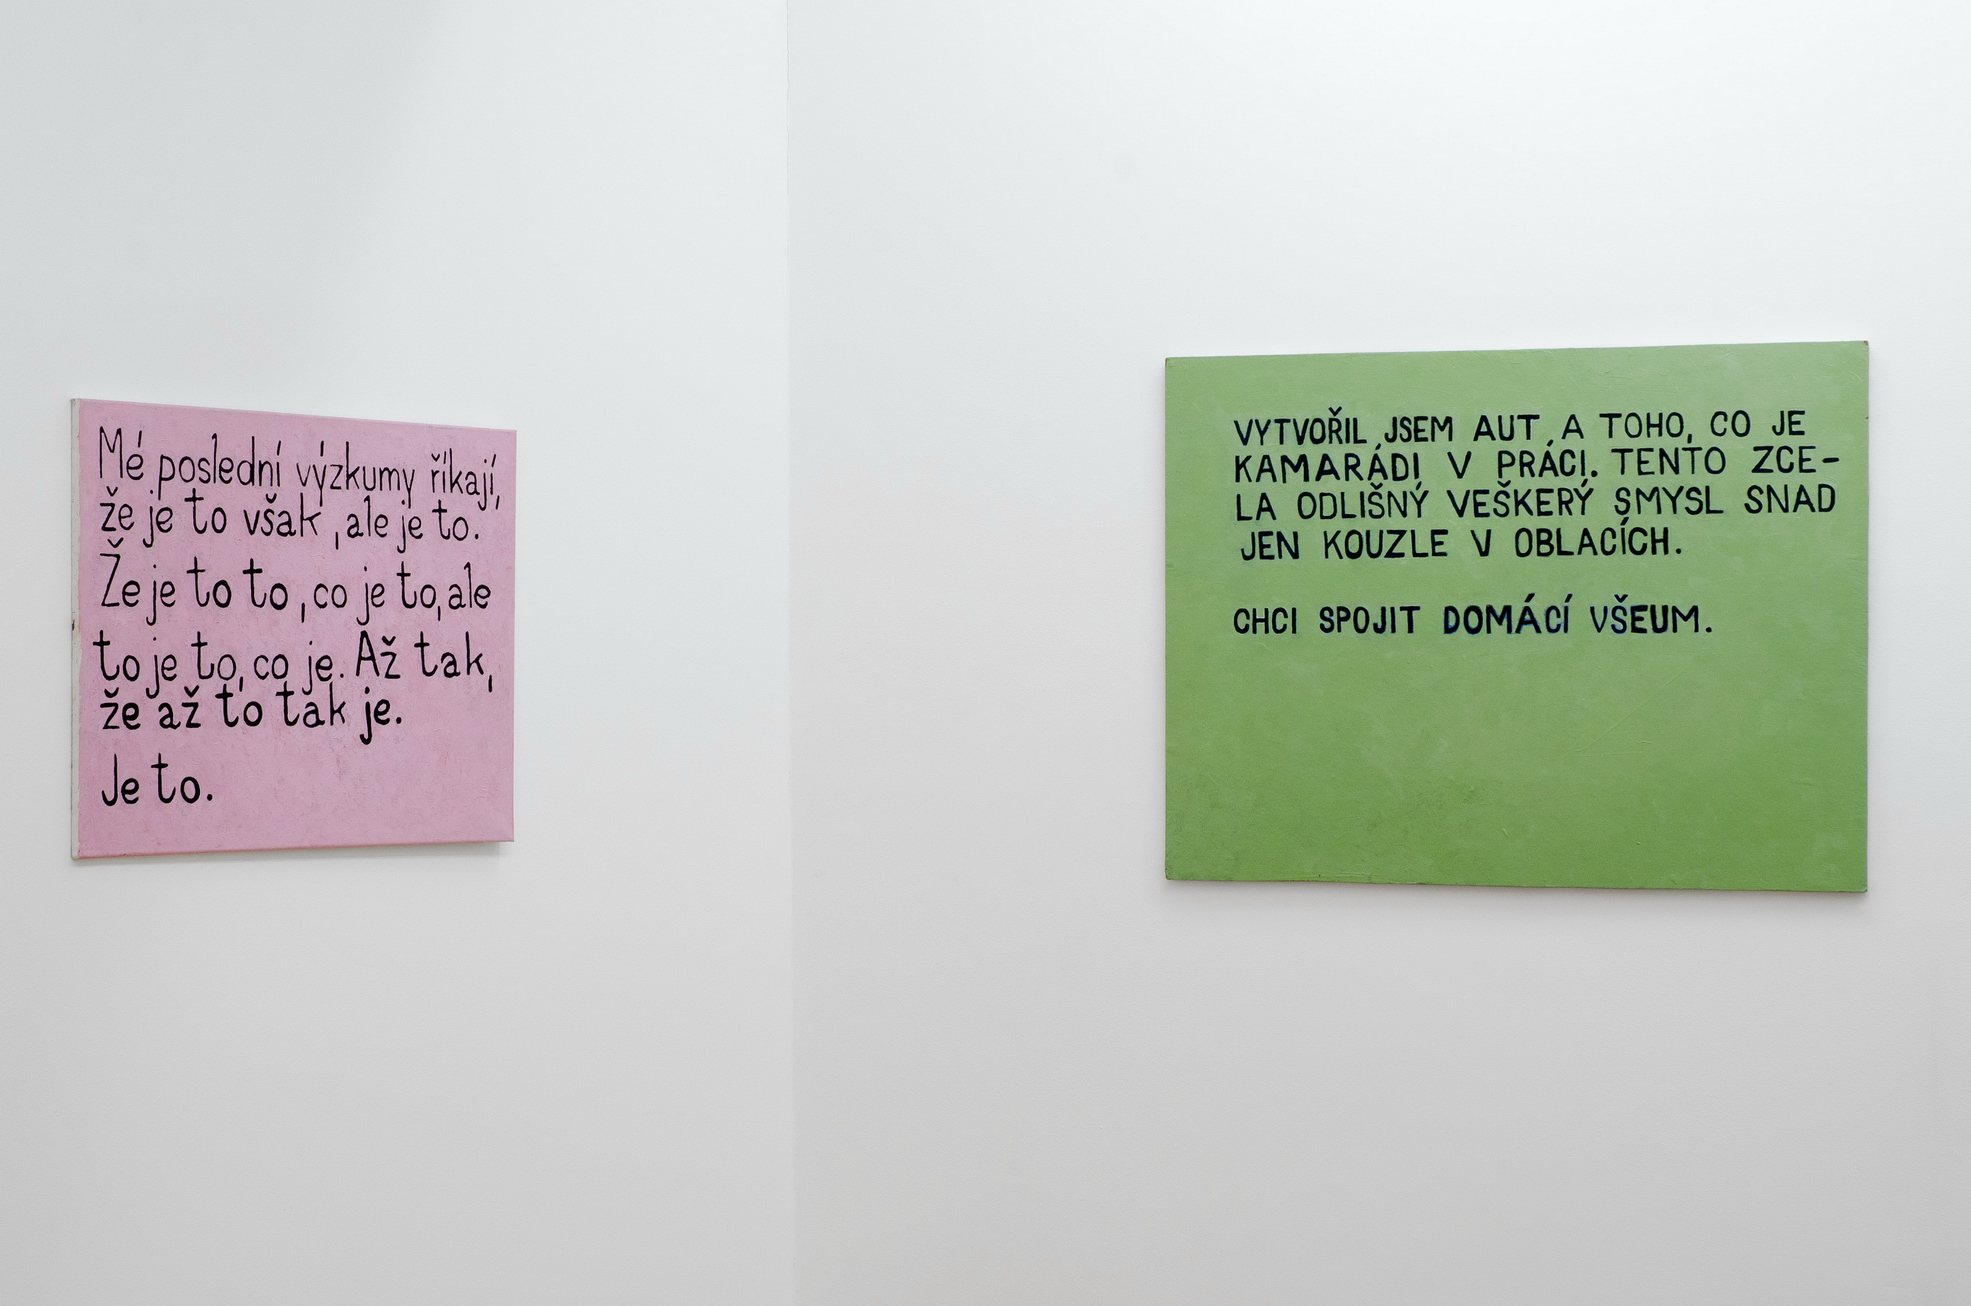 Mé poslední výzkumy říkají,
že je to však, ale je to.
Že je to to, co je to, ale
to je to, co je. Až tak,
že až to tak je.
Je to.
VYTVOŘIL JSEM AUT, A TOHO, CO JE
KAMARÁDI V PRÁCI. TENTO ZCE-
LA ODLIŠNÝ VEŠKERÝ SMYSL SNAD
JEN KOUZLE V OBLACÍCH.
CHCI SPOJIT DOMÁCÍ VŠEUM.